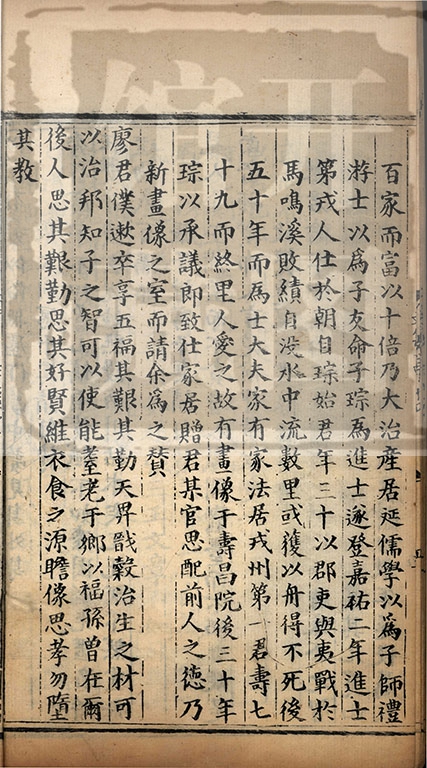 百家而富以十倍乃大治產居延儒學以爲子師禮
游士以爲子友命子琮爲進士遂登嘉祐二年進士
第戎人仕於朝自琮始君年三十以郡吏與夷戰於
馬鳴溪敗績自没水中流數里或獲以舟得不死後
五十年而爲士大夫家有家法居戎州第一君壽七
十九而終里人愛之故有畫像于壽昌院後三十年
琮以承議郎致仕家居贈君某官思配前人之德乃
新畫像之室而請余爲之賛
廖君僕遬卒享五福其艱其勤天畀戩穀治生之材可
以治邦知子之智可以使能耋老于鄉以福孫曾在爾
後人思其艱勤思其好賢維衣食之源瞻像思孝勿墮
其教